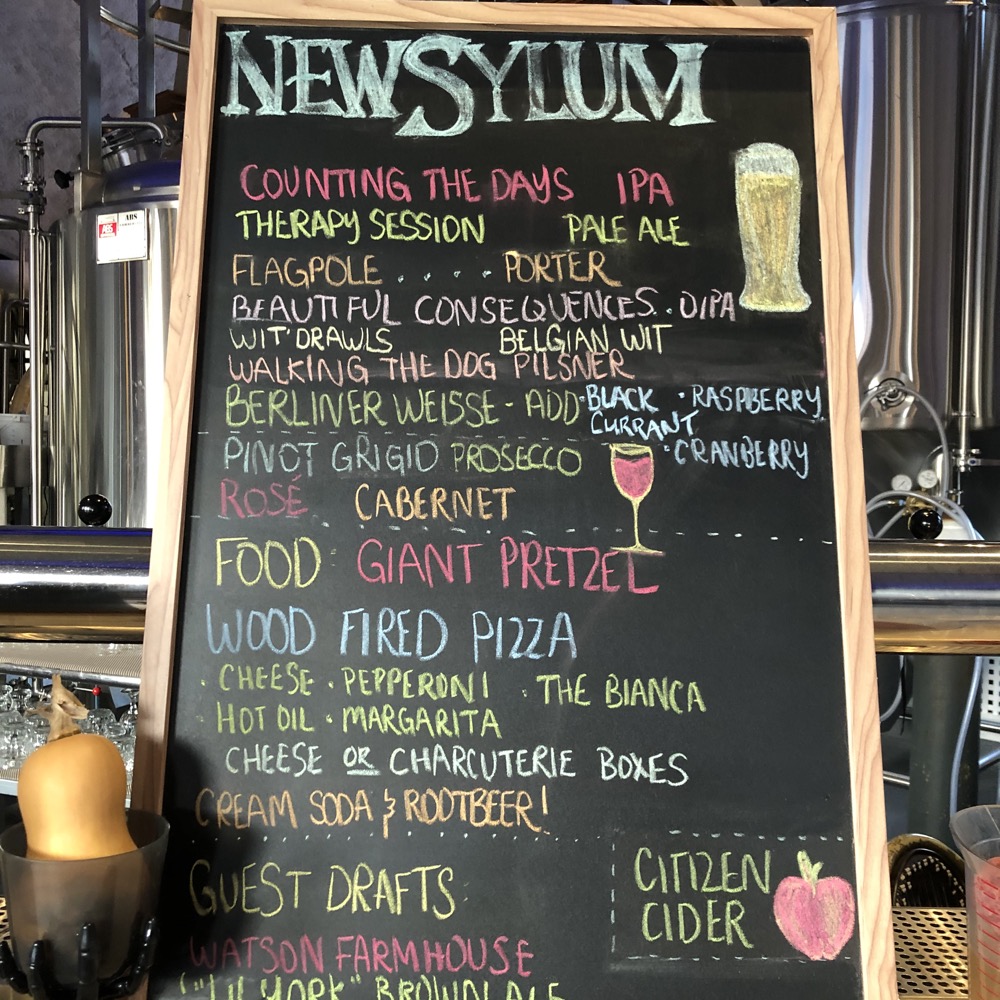 NEWSYLUM
COUNTING THE DAYS IPA
THERAPY SESSION PALE ALE
FLAGPOLE . . . . . PORTER
BEAUTIFUL CONSEQUENCES . DIPA
WIT'DRAWLS BELGIAN WIT
WALKING THE DOG PILSNER
BERLINER WEISSE - ADD · BLACK CURRANT · RASPBERRY
· CRANBERRY
PINOT GRIGIO PROSECCO
ROSÉ CABERNET
FOOD · GIANT PRETZEL
WOOD FIRED PIZZA
· CHEESE · PEPPERONI · THE BIANCA
· HOT OIL · MARGARITA
CHEESE OR CHARCUTERIE BOXES
CREAM SODA & ROOTBEER!
GUEST DRAFTS
CITIZEN
CIDER
WATSON FARMHOUSE
"LIL YORK" BROWN ALE
ABS